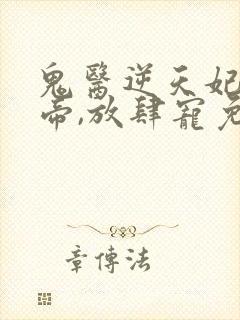 鬼醫逆天妃
帝,放肆寵免
章傳法